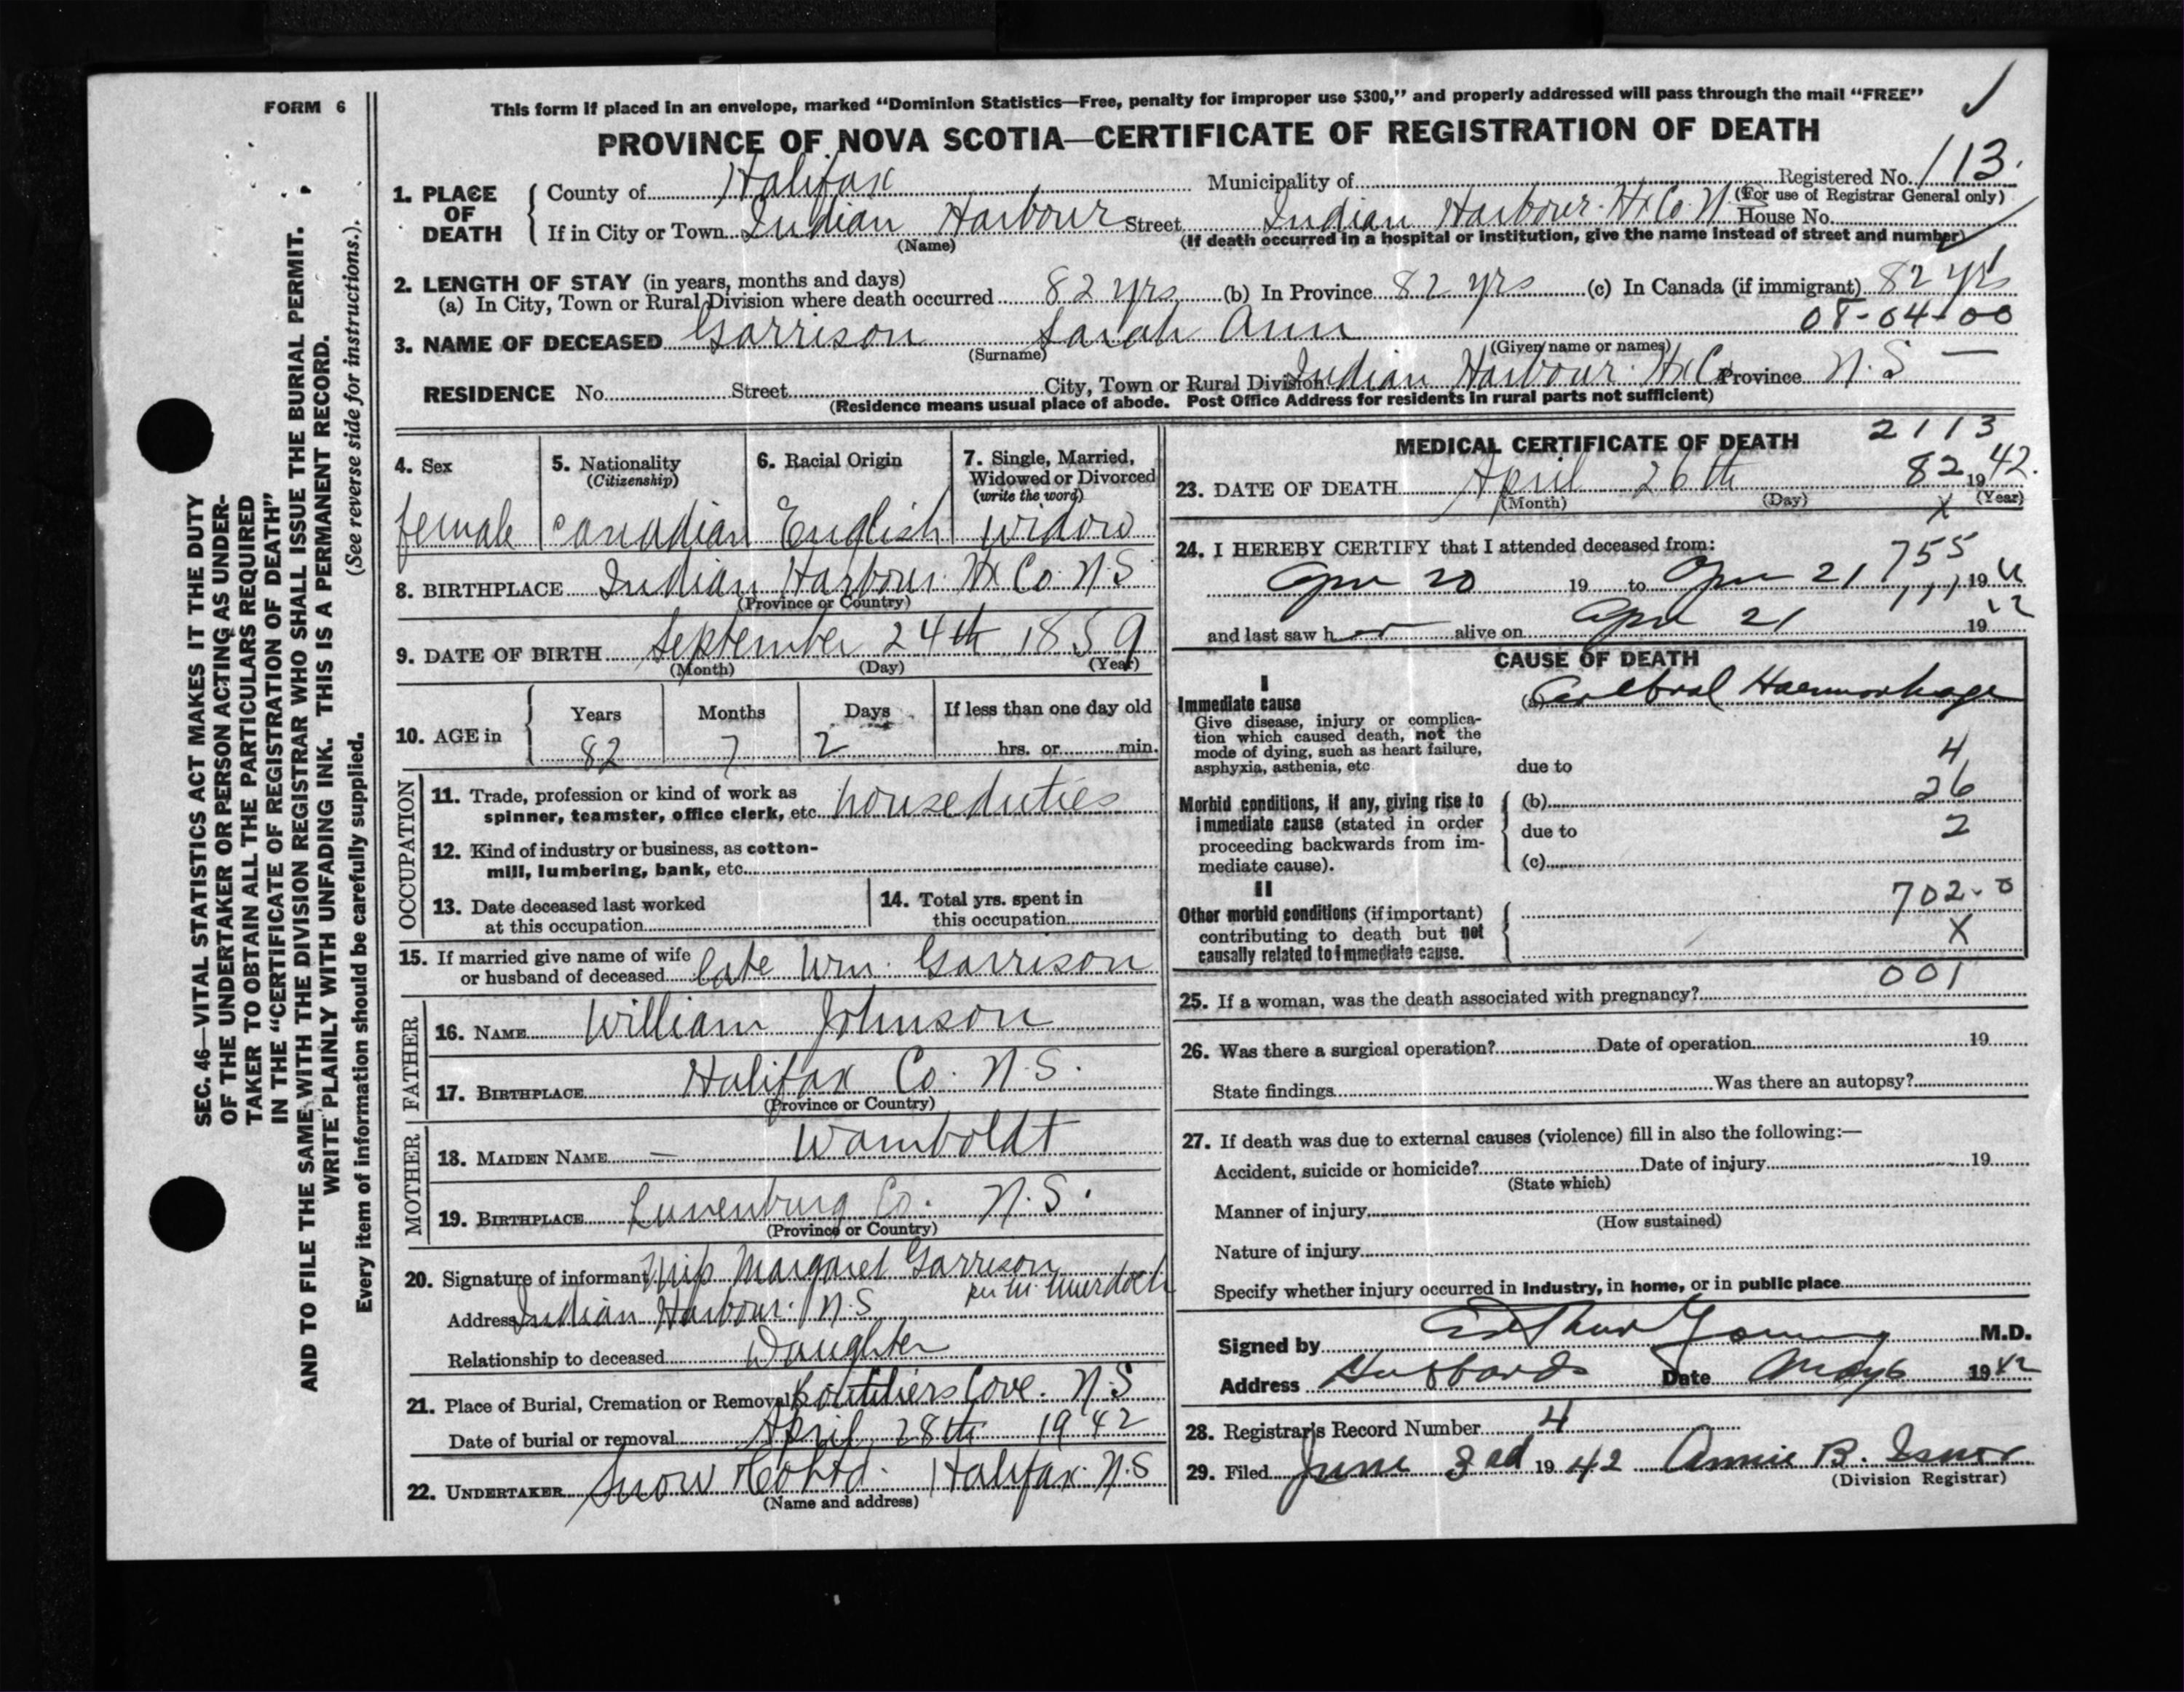 FORM 6
This form if placed in an envelope, marked “Dominion Statistics—Free, penalty for improper use $300,” and properly addressed will pass through the mail “FREE”
PROVINCE OF NOVA SCOTIA—CERTIFICATE OF REGISTRATION OF DEATH
SEC. 46—VITAL STATISTICS ACT MAKES IT THE DUTY
OF THE UNDERTAKER OR PERSON ACTING AS UNDER-
TAKER TO OBTAIN ALL THE PARTICULARS REQUIRED
IN THE “CERTIFICATE OF REGISTRATION OF DEATH”
AND TO FILE THE SAME WITH THE DIVISION REGISTRAR WHO SHALL ISSUE THE BURIAL PERMIT.
WRITE PLAINLY WITH UNFADING INK. THIS IS A PERMANENT RECORD.
Every item of information should be carefully supplied. (See reverse side for instructions.)
Registered No. 113.
(For use of Registrar General only)
1. PLACE OF DEATH
County of Halifax Municipality of
If in City or Town Indian Harbour Street Indian Harbour Hx Co N House No.
(Name) (If death occurred in a hospital or institution, give the name instead of street and number)
2. LENGTH OF STAY (in years, months and days)
(a) In City, Town or Rural Division where death occurred 82 yrs (b) In Province 82 yrs (c) In Canada (if immigrant) 82 yrs
08-04-00
3. NAME OF DECEASED Garrison Sarah Ann
(Surname) (Given name or names)
RESIDENCE No. Street City, Town or Rural Division Indian Harbour Hx Co Province N.S —
(Residence means usual place of abode. Post Office Address for residents in rural parts not sufficient)
4. Sex
female
5. Nationality
(Citizenship)
Canadian
6. Racial Origin
English
7. Single, Married,
Widowed or Divorced
(write the word)
widow
8. BIRTHPLACE Indian Harbour Hx Co N.S
(Province or Country)
9. DATE OF BIRTH September 24th 1859
(Month) (Day) (Year)
10. AGE in
Years Months Days If less than one day old
82 7 2 hrs. or min.
OCCUPATION
11. Trade, profession or kind of work as
spinner, teamster, office clerk, etc. house duties
12. Kind of industry or business, as cotton-
mill, lumbering, bank, etc.
13. Date deceased last worked
at this occupation
14. Total yrs. spent in
this occupation
15. If married give name of wife
or husband of deceased late Wm. Garrison
FATHER
16. NAME William Johnson
17. BIRTHPLACE Halifax Co. N.S.
(Province or Country)
MOTHER
18. MAIDEN NAME — Wamboldt
19. BIRTHPLACE Lunenburg Co. N.S.
(Province or Country)
20. Signature of informant Miss Margaret Garrison
per M. Murdoch
Address Indian Harbour N.S
Relationship to deceased Daughter
21. Place of Burial, Cremation or Removal Boutiliers Cove. N.S
Date of burial or removal April 28th 1942
22. UNDERTAKER Snow & Co Ltd. Halifax N.S
(Name and address)
MEDICAL CERTIFICATE OF DEATH 2113
23. DATE OF DEATH April 26th 82 1942.
(Month) (Day) (Year)
X
24. I HEREBY CERTIFY that I attended deceased from: 755
Apr 20 19 to Apr 21 19
and last saw her alive on Apr 21 19
CAUSE OF DEATH
I
Immediate cause
Give disease, injury or complica-
tion which caused death, not the
mode of dying, such as heart failure,
asphyxia, asthenia, etc
(a) Cerebral Haemorrhage
4
due to
Morbid conditions, if any, giving rise to
immediate cause (stated in order
proceeding backwards from im-
mediate cause).
(b) 26
due to 2
(c)
II
Other morbid conditions (if important)
contributing to death but not
causally related to immediate cause.
702-0
X
001
25. If a woman, was the death associated with pregnancy?
26. Was there a surgical operation? Date of operation 19
State findings Was there an autopsy?
27. If death was due to external causes (violence) fill in also the following:—
Accident, suicide or homicide? Date of injury 19
(State which)
Manner of injury
(How sustained)
Nature of injury
Specify whether injury occurred in industry, in home, or in public place
Signed by Arthur Young M.D.
Address Hubbards Date May 6 1942
28. Registrar's Record Number 4
29. Filed June 3rd 1942 Annie B. Isnor
(Division Registrar)